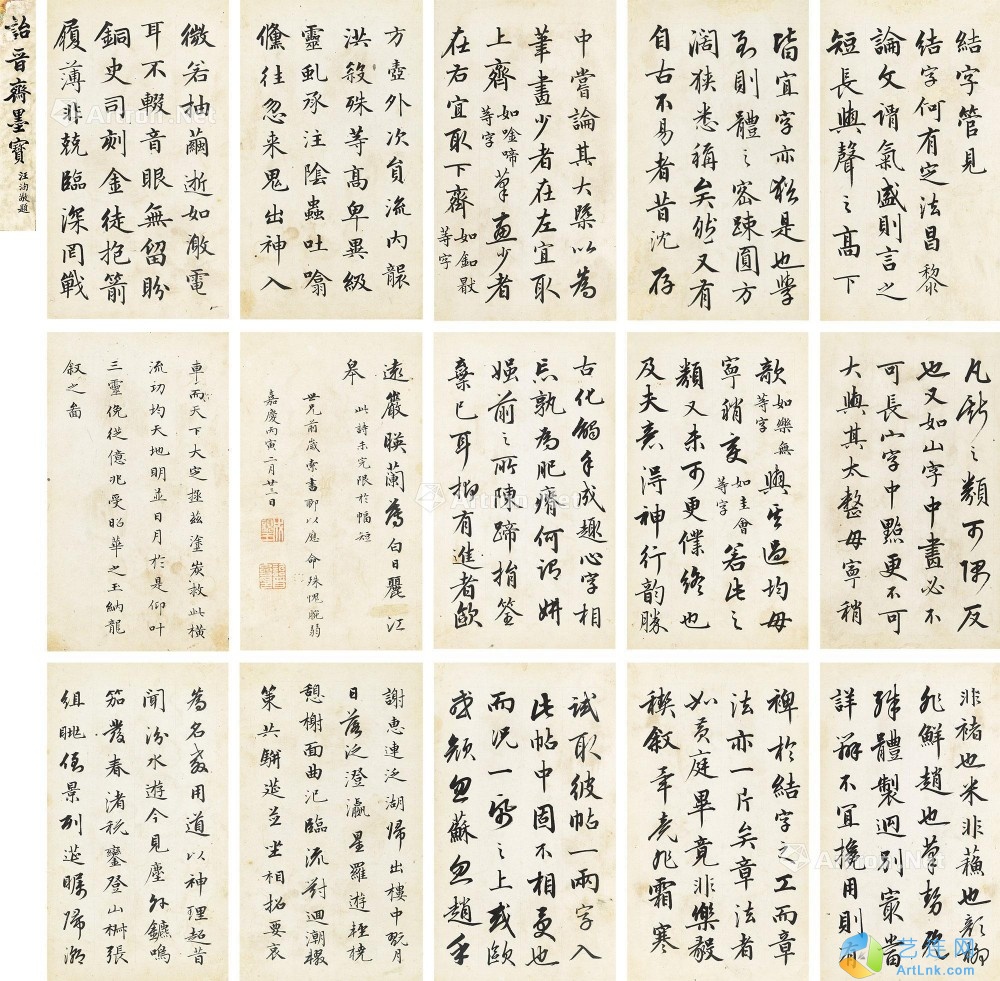 詒晉齋墨寶 汪洵敬題
結字管見
結字何有定法昌黎
論文謂氣盛則言之
短長與聲之高下
皆宜字亦猶是也學
至則體之密踈圓方
濶狹悉稱矣然又有
自古不易者昔沈存
中嘗論其大槩以為
筆畫少者在左宜取
上齊如唫啼等字筆畫少者
在右宜取下齊如釦等字
方壺外次員流內襲
洪殺殊等高卑異級
靈虬承注陰蟲吐噏
儵往忽來鬼出神入
微若抽繭逝如激電
耳不輟音眼無留盼
銅史司刻金徒抱箭
履薄非兢臨深罔戰
凡之類可隅反
也又如山字中畫必不
可長字中點更不可
大與其太整毋寧稍
欹如樂無等字與其過均毋
寧稍變如圭會等字若此之
類又未可更僕終也
及夫意得神行韵勝
古化觸手成趣心字相
忘孰為肥瘠何謂妍
媸前之所陳蹄捐筌
棄已耳抑有進者歐
遠巖暎蘭薄白日麗江
皋 此詩未完限於幅短
世兄前歲索書即以應命殊愧腕弱
嘉慶丙寅二月廿三日
車而天下大定拯茲塗炭救此橫
流功均天地明並日月於是仰叶
三靈俛從億兆受昭華之玉納龍
叙之圖
非褚也米非蘇也顏柳
非鮮趙也筆勢既
殊體製迥別寂當
詳辨不宜攙用則有
裨於結字之工而章
法亦一片矣章法者
如黃庭畢竟非樂毅
稧叙非霜寒
試取彼帖一兩字入
此帖中固不相也
而況一帋之上或歐
或顏忽蘇忽趙乎
謝惠連泛湖歸出樓中翫月
日落泛澄瀛星羅遊輕橈
憩榭面曲汜臨流對迴潮輟
策共駢筵並坐相招要哀
為名教用道以神理超昔
聞汾水遊今見塵外鑣鳴
笳發春渚稅鑾登山椒張
組眺倒景列筵矚歸潮
艺连网
ArtLnk.com